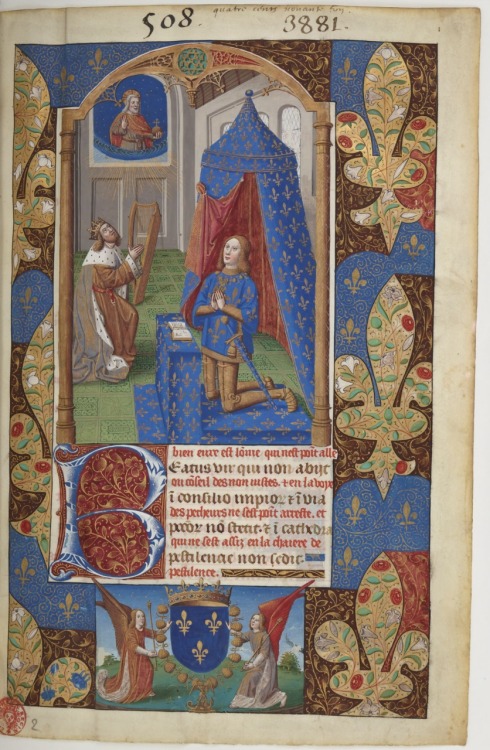 quatre cents nonante
508.
3881.
bien eure est lõme qui nest poit alle
Eatus vir qui non abijt
ou cõseil des non iustes. & en la voye
ĩ consilio impior & ĩ via
des pecheurs ne sest point arreste. et
pctor nõ stetit & ĩ cathedra
qui ne sest assiz en la chaiere de
pestilencie non sedit
pestilence.
2